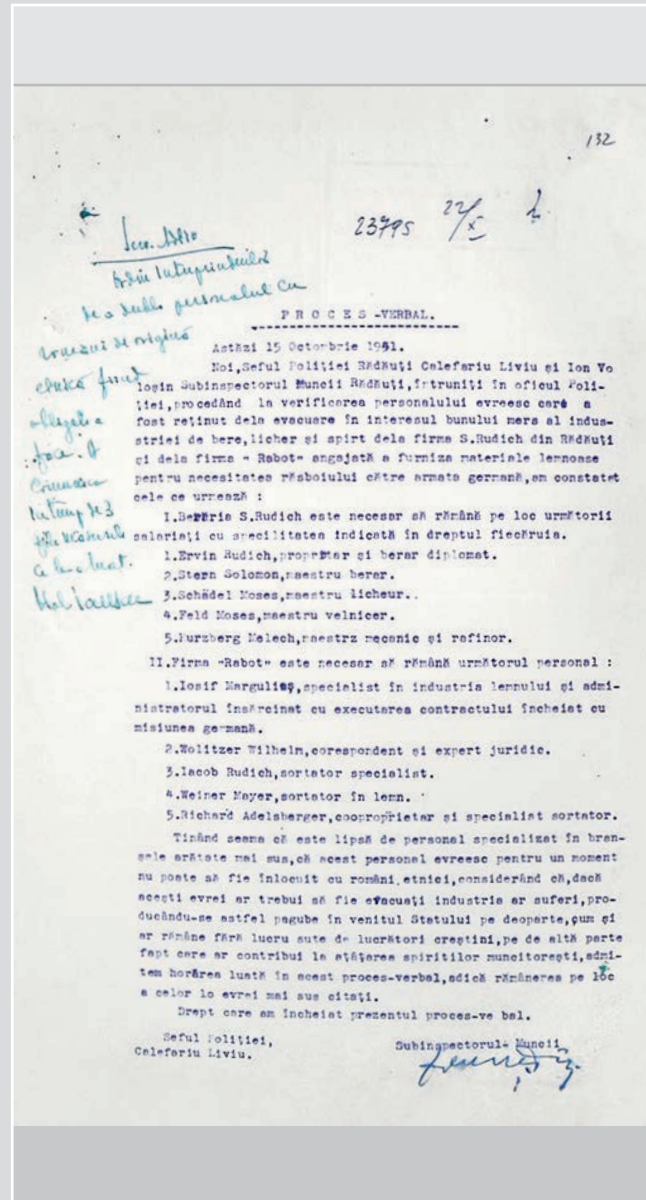 132
23795 22/X
Ordin Intreprinderilor
de a dubla personalul cu
romani de origină
etnică fiind
obligați a
face.
in timp de 3
zile
P R O C E S -VERBAL.
Astăzi 15 Octombrie 1941.
Noi,Seful Poliției Rădăuți Calefariu Liviu și Ion Vo
loșin Subinspectorul Muncii Rădăuți,întruniți în oficul Poli-
ției,procedând la verificarea personalului evreesc care a
fost reținut dela evacuare în interesul bunului mers al indus-
striei de bere,licher și spirt dela firma S.Rudich din Rădăuți
și dela firma " Rabot" angajată a furniza materiale lemnoase
pentru necesitatea răsboiului către armata germană,am constatat
cele ce urmează :
I.Berăria S.Rudich este necesar să rămână pe loc următorii
salariați cu specilitatea indicată în dreptul fiecăruia.
1.Ervin Rudich,proprietar și berar diplomat.
2.Stern Solomon,maestru berar.
3.Schädel Moses,maestru licheur..
4.Feld Moses,maestru velnicer.
5.Furzberg Melech,maestrz mecanic și rafinor.
II.Firma "Rabot" este necesar să rămână următorul personal :
1.Iosif Margulies,specialist în industria lemnului și admi-
nistratorul însărcinat cu executarea contractului încheiat cu
misiunea germană.
2.Wolitzer Wilhelm,corespondent și expert juridic.
3.Iacob Rudich,sortator specialist.
4.Weiner Mayer,sortator în lemn.
5.Richard Adelsberger,cooproprietar și specialist sortator.
Tinând seama că este lipsă de personal specializat în bran-
șele arătate mai sus,că acest personal evreesc pentru un moment
nu poate să fie înlocuit cu români,etnici,considerând că,dacă
acești evrei ar trebui să fie evacuați industria ar suferi,pro-
ducându-se astfel pagube în venitul Statului pe deoparte,cum și
ar rămâne fără lucru sute de lucrători creștini,pe de altă parte
fapt care ar contribui la ațâțarea spiritilor muncitorești,admi-
tem horărea luată în acest proces-verbal,adică rămânerea pe loc
a celor lo evrei mai sus citați.
Drept care am încheiat prezentul proces-ve bal.
Seful Poliției,
Calefariu Liviu.
Subinspectorul Muncii